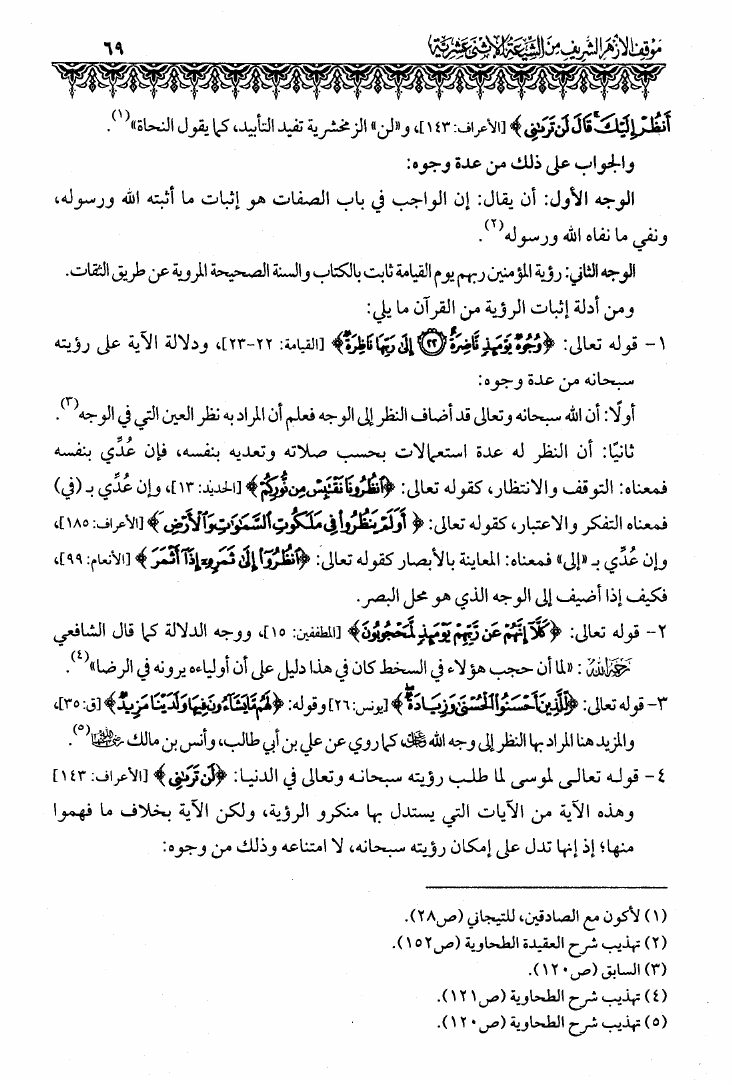 موقف الأزهر الشريف من الشيعة الاثنى عشرية ٦٩
أَنظُرْ إِلَيْكَ ۚ قَالَ لَن تَرَىٰنِى ﴾ [الأعراف: ١٤٣]، و«لن» الزمخشرية تفيد التأبيد، كما يقول النحاة»(١).
والجواب على ذلك من عدة وجوه:
الوجه الأول: أن يقال: إن الواجب في باب الصفات هو إثبات ما أثبته الله ورسوله،
ونفي ما نفاه الله ورسوله(٢).
الوجه الثاني: رؤية المؤمنين ربهم يوم القيامة ثابت بالكتاب والسنة الصحيحة المروية عن طريق الثقات.
ومن أدلة إثبات الرؤية من القرآن ما يلي:
١- قوله تعالى: ﴿وُجُوهٌ يَوْمَئِذٍ نَّاضِرَةٌ ﴿٢٢﴾ إِلَىٰ رَبِّهَا نَاظِرَةٌ﴾ [القيامة: ٢٢-٢٣]، ودلالة الآية على رؤيته
سبحانه من عدة وجوه:
أولًا: أن الله سبحانه وتعالى قد أضاف النظر إلى الوجه فعلم أن المراد به نظر العين التي في الوجه(٣).
ثانيًا: أن النظر له عدة استعمالات بحسب صلاته وتعديه بنفسه، فإن عُدِّي بنفسه
فمعناه: التوقف والانتظار، كقوله تعالى: ﴿انظُرُونَا نَقْتَبِسْ مِن نُّورِكُمْ﴾ [الحديد: ١٣]، وإن عُدِّي بـ (في)
فمعناه التفكر والاعتبار، كقوله تعالى: ﴿ أَوَلَمْ يَنظُرُوا۟ فِى مَلَكُوتِ السَّمَٰوَٰتِ وَالْأَرْضِ ﴾ [الأعراف: ١٨٥]،
وإن عُدِّي بـ «إلى» فمعناه: المعاينة بالأبصار كقوله تعالى: ﴿انظُرُوٓا۟ إِلَىٰ ثَمَرِهِۦٓ إِذَآ أَثْمَرَ ﴾ [الأنعام: ٩٩]،
فكيف إذا أضيف إلى الوجه الذي هو محل البصر.
٢- قوله تعالى: ﴿كَلَّآ إِنَّهُمْ عَن رَّبِّهِمْ يَوْمَئِذٍ لَّمَحْجُوبُونَ﴾ [المطففين: ١٥]، ووجه الدلالة كما قال الشافعي
رحمه الله: «لما أن حجب هؤلاء في السخط كان في هذا دليل على أن أولياءه يرونه في الرضا»(٤).
٣- قوله تعالى: ﴿لِّلَّذِينَ أَحْسَنُوا۟ الْحُسْنَىٰ وَزِيَادَةٌ ۖ﴾ [يونس: ٢٦] وقوله: ﴿لَهُم مَّا يَشَآءُونَ فِيهَا وَلَدَيْنَا مَزِيدٌ﴾ [ق: ٣٥]،
والمزيد هنا المراد بها النظر إلى وجه الله ، كما روي عن علي بن أبي طالب، وأنس بن مالك (٥).
٤- قوله تعالى لموسى لما طلب رؤيته سبحانه وتعالى في الدنيا: ﴿لَن تَرَىٰنِى ﴾ [الأعراف: ١٤٣]
وهذه الآية من الآيات التي يستدل بها منكرو الرؤية، ولكن الآية بخلاف ما فهموا
منها؛ إذ إنها تدل على إمكان رؤيته سبحانه، لا امتناعه وذلك من وجوه:
(١) لأكون مع الصادقين، للتيجاني (ص٢٨).
(٢) تهذيب شرح العقيدة الطحاوية (ص١٥٢).
(٣) السابق (ص١٢٠).
(٤) تهذيب شرح الطحاوية (ص١٢١).
(٥) تهذيب شرح الطحاوية (ص١٢٠).